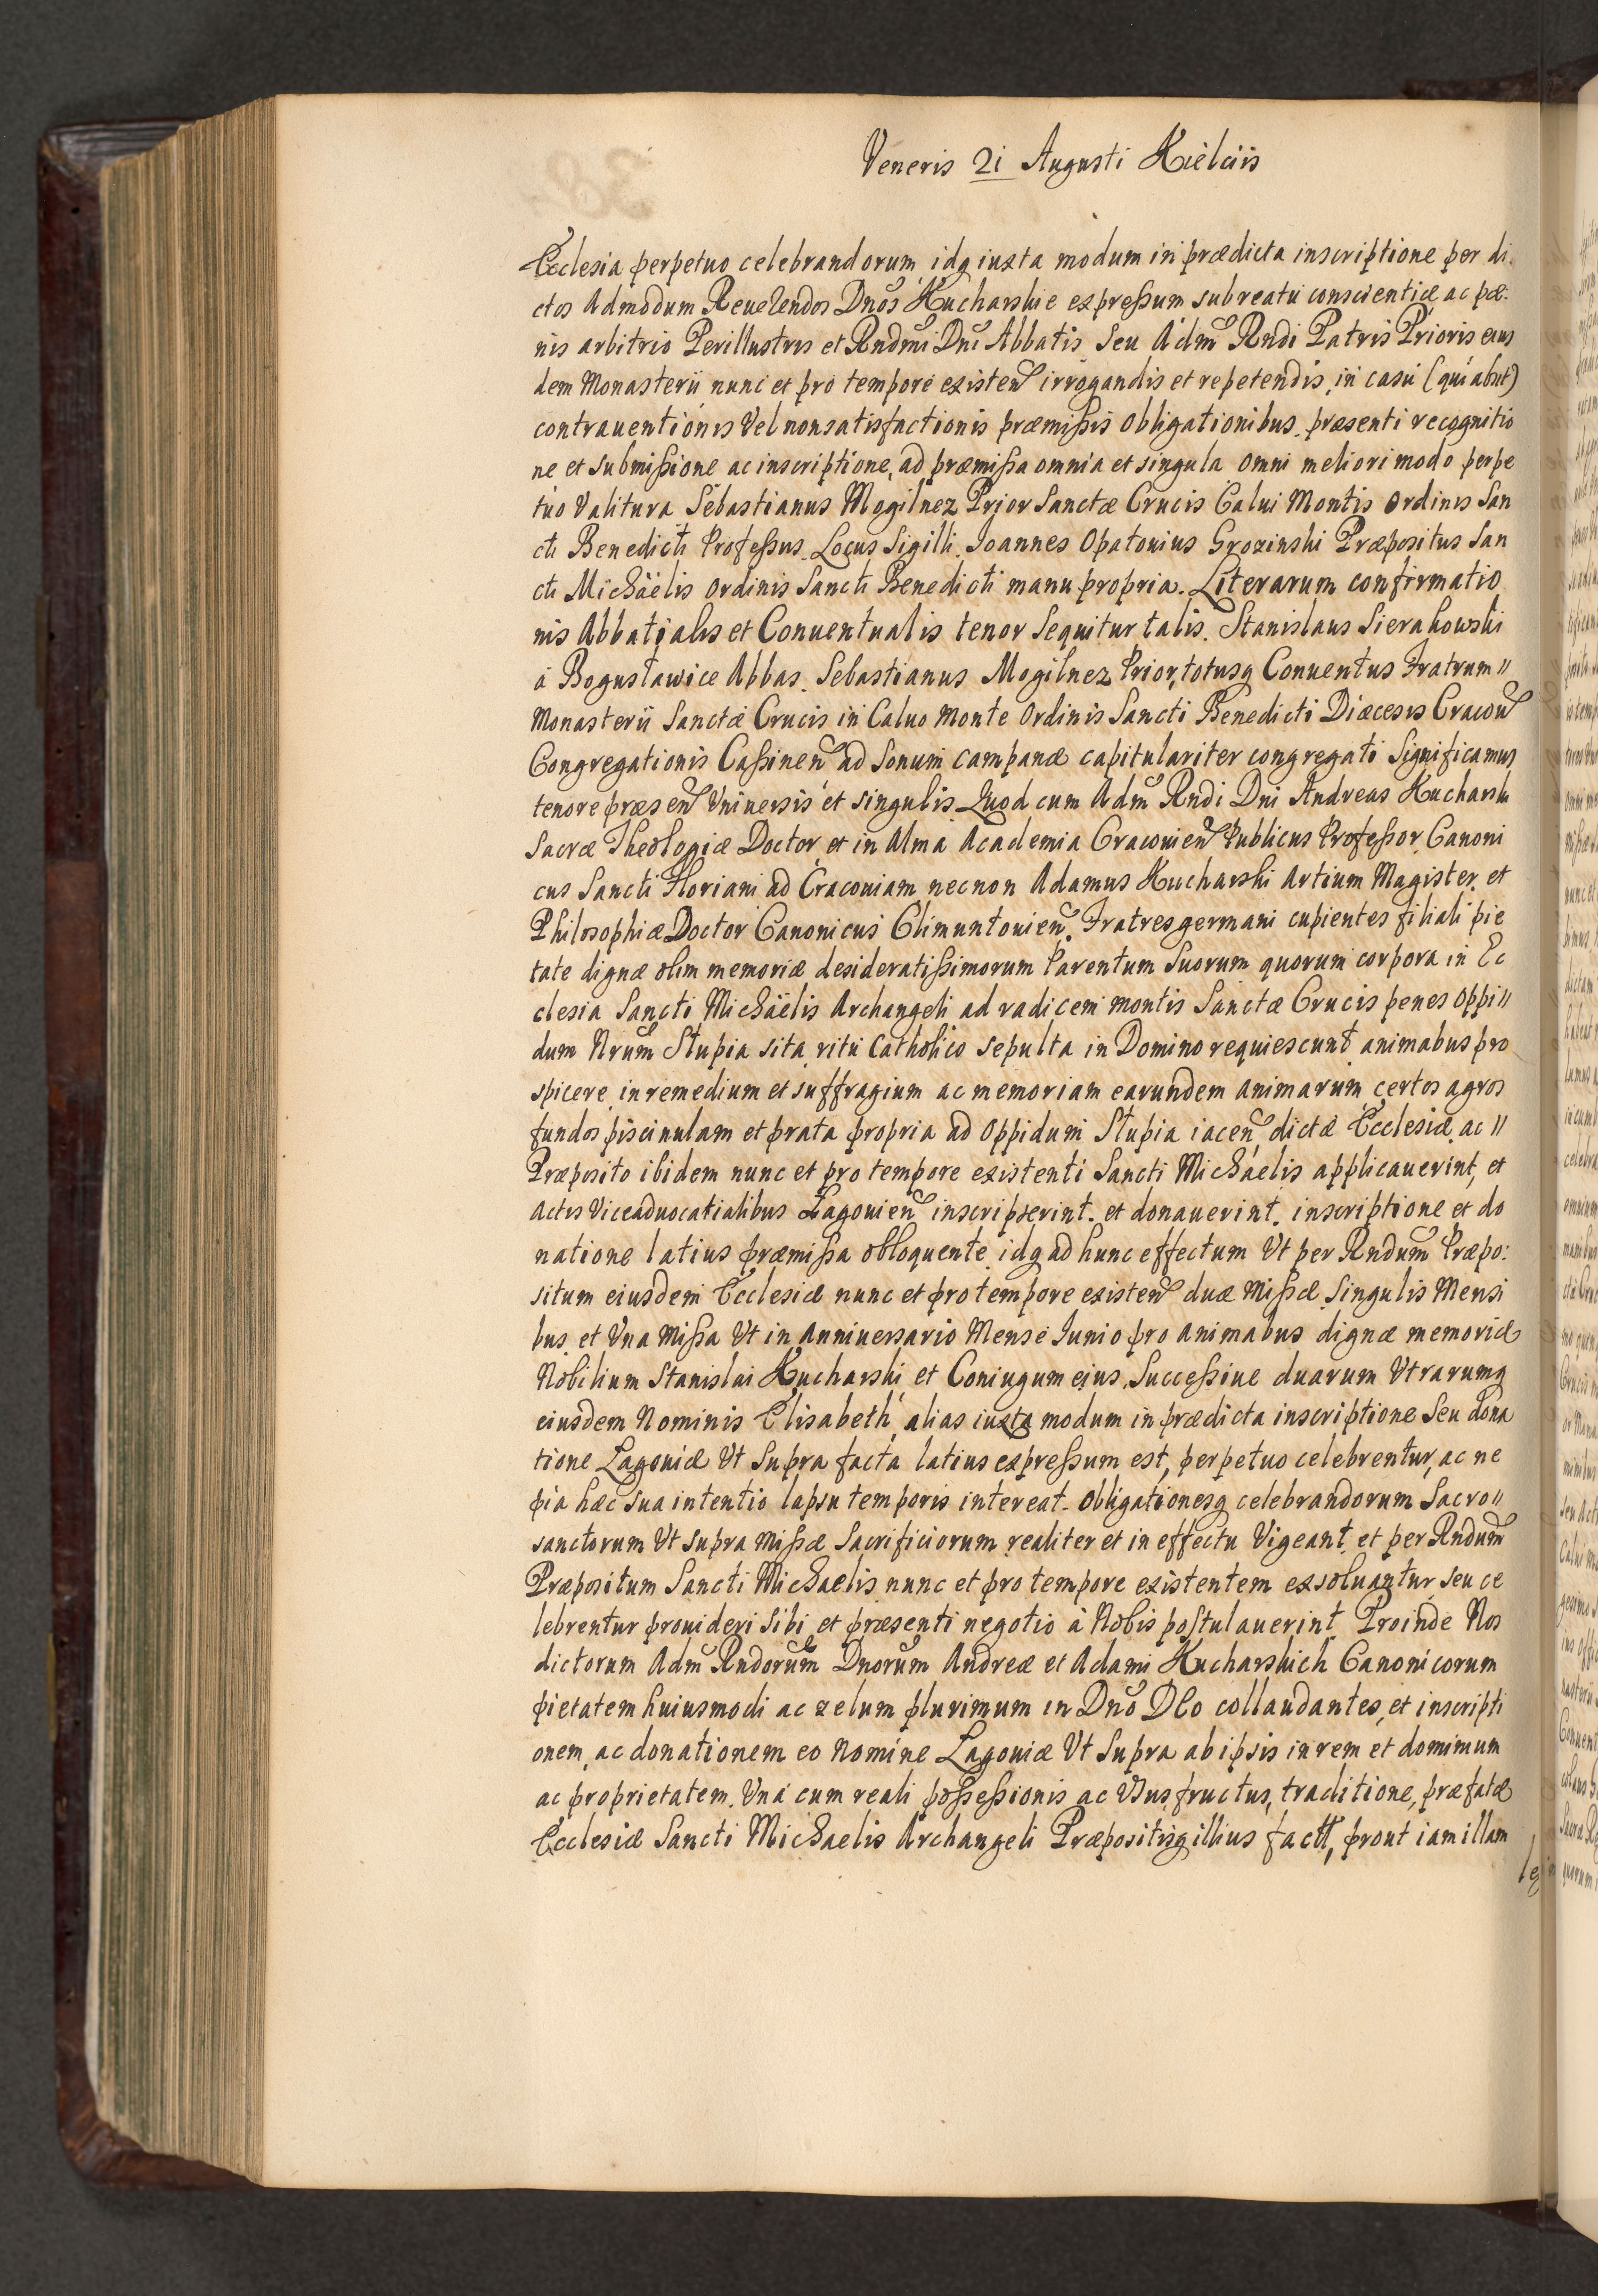 Veneris 2i Augusti Kielciis
Ecclesia perpetuo celebrandorum idq iuxta modum in prædicta inscriptione per di
ctos Admodum Reuerendos Dnos Kucharskie expreßum sub reatu conscientiæ ac pæ:
nis arbitrio Perillustris et Rndmi Dni Abbatis seu Adm Rndi Patris Prioris eius
dem Monasterii nunc et pro tempore existen irrogandis et repetendis, in casu (qui absit)
contrauentionis Vel non satisfactionis præmißis obligationibus præsenti recognitio
ne et submißione ac inscriptione, ad præmißa omnia et singula omni meliori modo perpe
tuo Valitura Sebastianus Mogilnez Prior Sanctæ Crucis Calui Montis ordinis San
cti Benedicti Profeßus. Locus Sigilli. Joannes Opatouius Grozinski Præpositus San
cti Michäelis ordinis Sancti Benedicti manu propria. Literarum confirmatio
nis Abbatialis et Conuentualis tenor sequitur talis. Stanislaus Sierakowski
à Bogusławice Abbas. Sebastianus Mogilnez Prior, totusq Conuentus Fratrum //
Monasterii Sanctæ Crucis in Caluo Monte Ordinis Sancti Benedicti Diæcesis Cracou
Congregationis Caßinen ad sonum campanæ capitulariter congregati Significamus
tenore præsen Vniuersis et singulis Quod cum Adm Rndi Dni Andreas Kucharski
Sacræ Theologiæ Doctor, et in Alma Academia Cracouien Publicus Profeßor, Canoni
cus Sancti Floriani ad Cracouiam necnon Adamus Kucharski Artium Magister et
Philosophiæ Doctor Canonicus Climuntouien. Fratres germani cupientes filiali pie
tate dignæ olim memoriæ desideratißimorum Parentum Suorum quorum corpora in Ec
clesia Sancti Michäelis Archangeli ad radicem montis Sanctæ Crucis penes Oppi //
dum Nrum Słupia sita ritu Catholico sepulta in Domino requiescunt animabus pro
spicere in remedium et suffragium ac memoriam earundem animarum certos agros
fundos piscinulam et prata propria ad Oppidum Słupia iacen dictæ Ecclesiæ ac //
Præposito ibidem nunc et pro tempore existenti Sancti Michäelis applicauerint, et
Actis Viceaduocatialibus Łagouien inscripserint. et donauerint. inscriptione et do
natione latius præmißa obloquente idq ad hunc effectum Vt per Rndum Præpo:
situm eiusdem Ecclesiæ nunc et pro tempore existen duæ Mißæ Singulis Mensi
bus et Vna Mißa Vt in Anniuersario Mense Iunio pro animabus dignæ memoriæ
Nobilium Stanislai Kucharski et Coniugum eius Succeßiue duarum Vtrarumq
eiusdem Nominis Elisabeth alias iuxta modum in prædicta inscriptione Seu dona
tione Lagouiæ Vt Supra facta latius expreßum est, perpetuo celebrentur, ac ne
pia hæc sua intentio lapsu temporis intereat. Obligationesq celebrandorum Sacro //
sanctorum Vt supra Mißæ Sacrificiorum realiter et in effectu Vigeant et per Rndum
Præpositum Sancti Michaelis nunc et pro tempore existentem exsoluantur seu ce
lebrentur prouideri sibi et præsenti negotio à Nobis postulauerint Proinde Nos
dictorum Adm Rndorum Dnorum Andreæ et Adami Kucharskich Canonicorum
pietatem huiusmodi ac zelum plurimum in Dno DEo collaudantes, et inscripti
onem, ac donationem eo Nomine Lagouiæ Vt Supra ab ipsis in rem et dominium
ac proprietatem. Vnà cum reali poßeßionis ac Vsus fructus, traditione, præfatæ
Ecclesiæ Sancti Michaelis Archangeli Præpositisq illius factt, prout iam illam